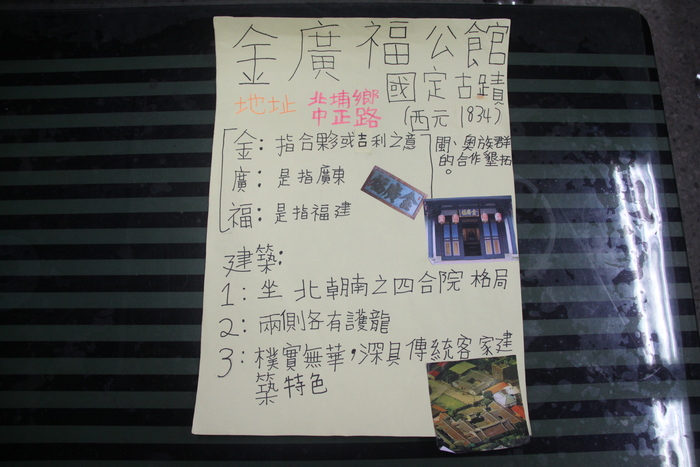 金廣福公館
國定古蹟
(西元 1834)
地址 北埔鄉
中正路
金：指合夥或吉利之意
廣：是指廣東
福：是指福建
閩、奧族群
合作墾拓
的。
建築：
1：坐北朝南之四合院格局
2：兩側各有護龍
3：樸實無華，深具傳統客家建
築特色